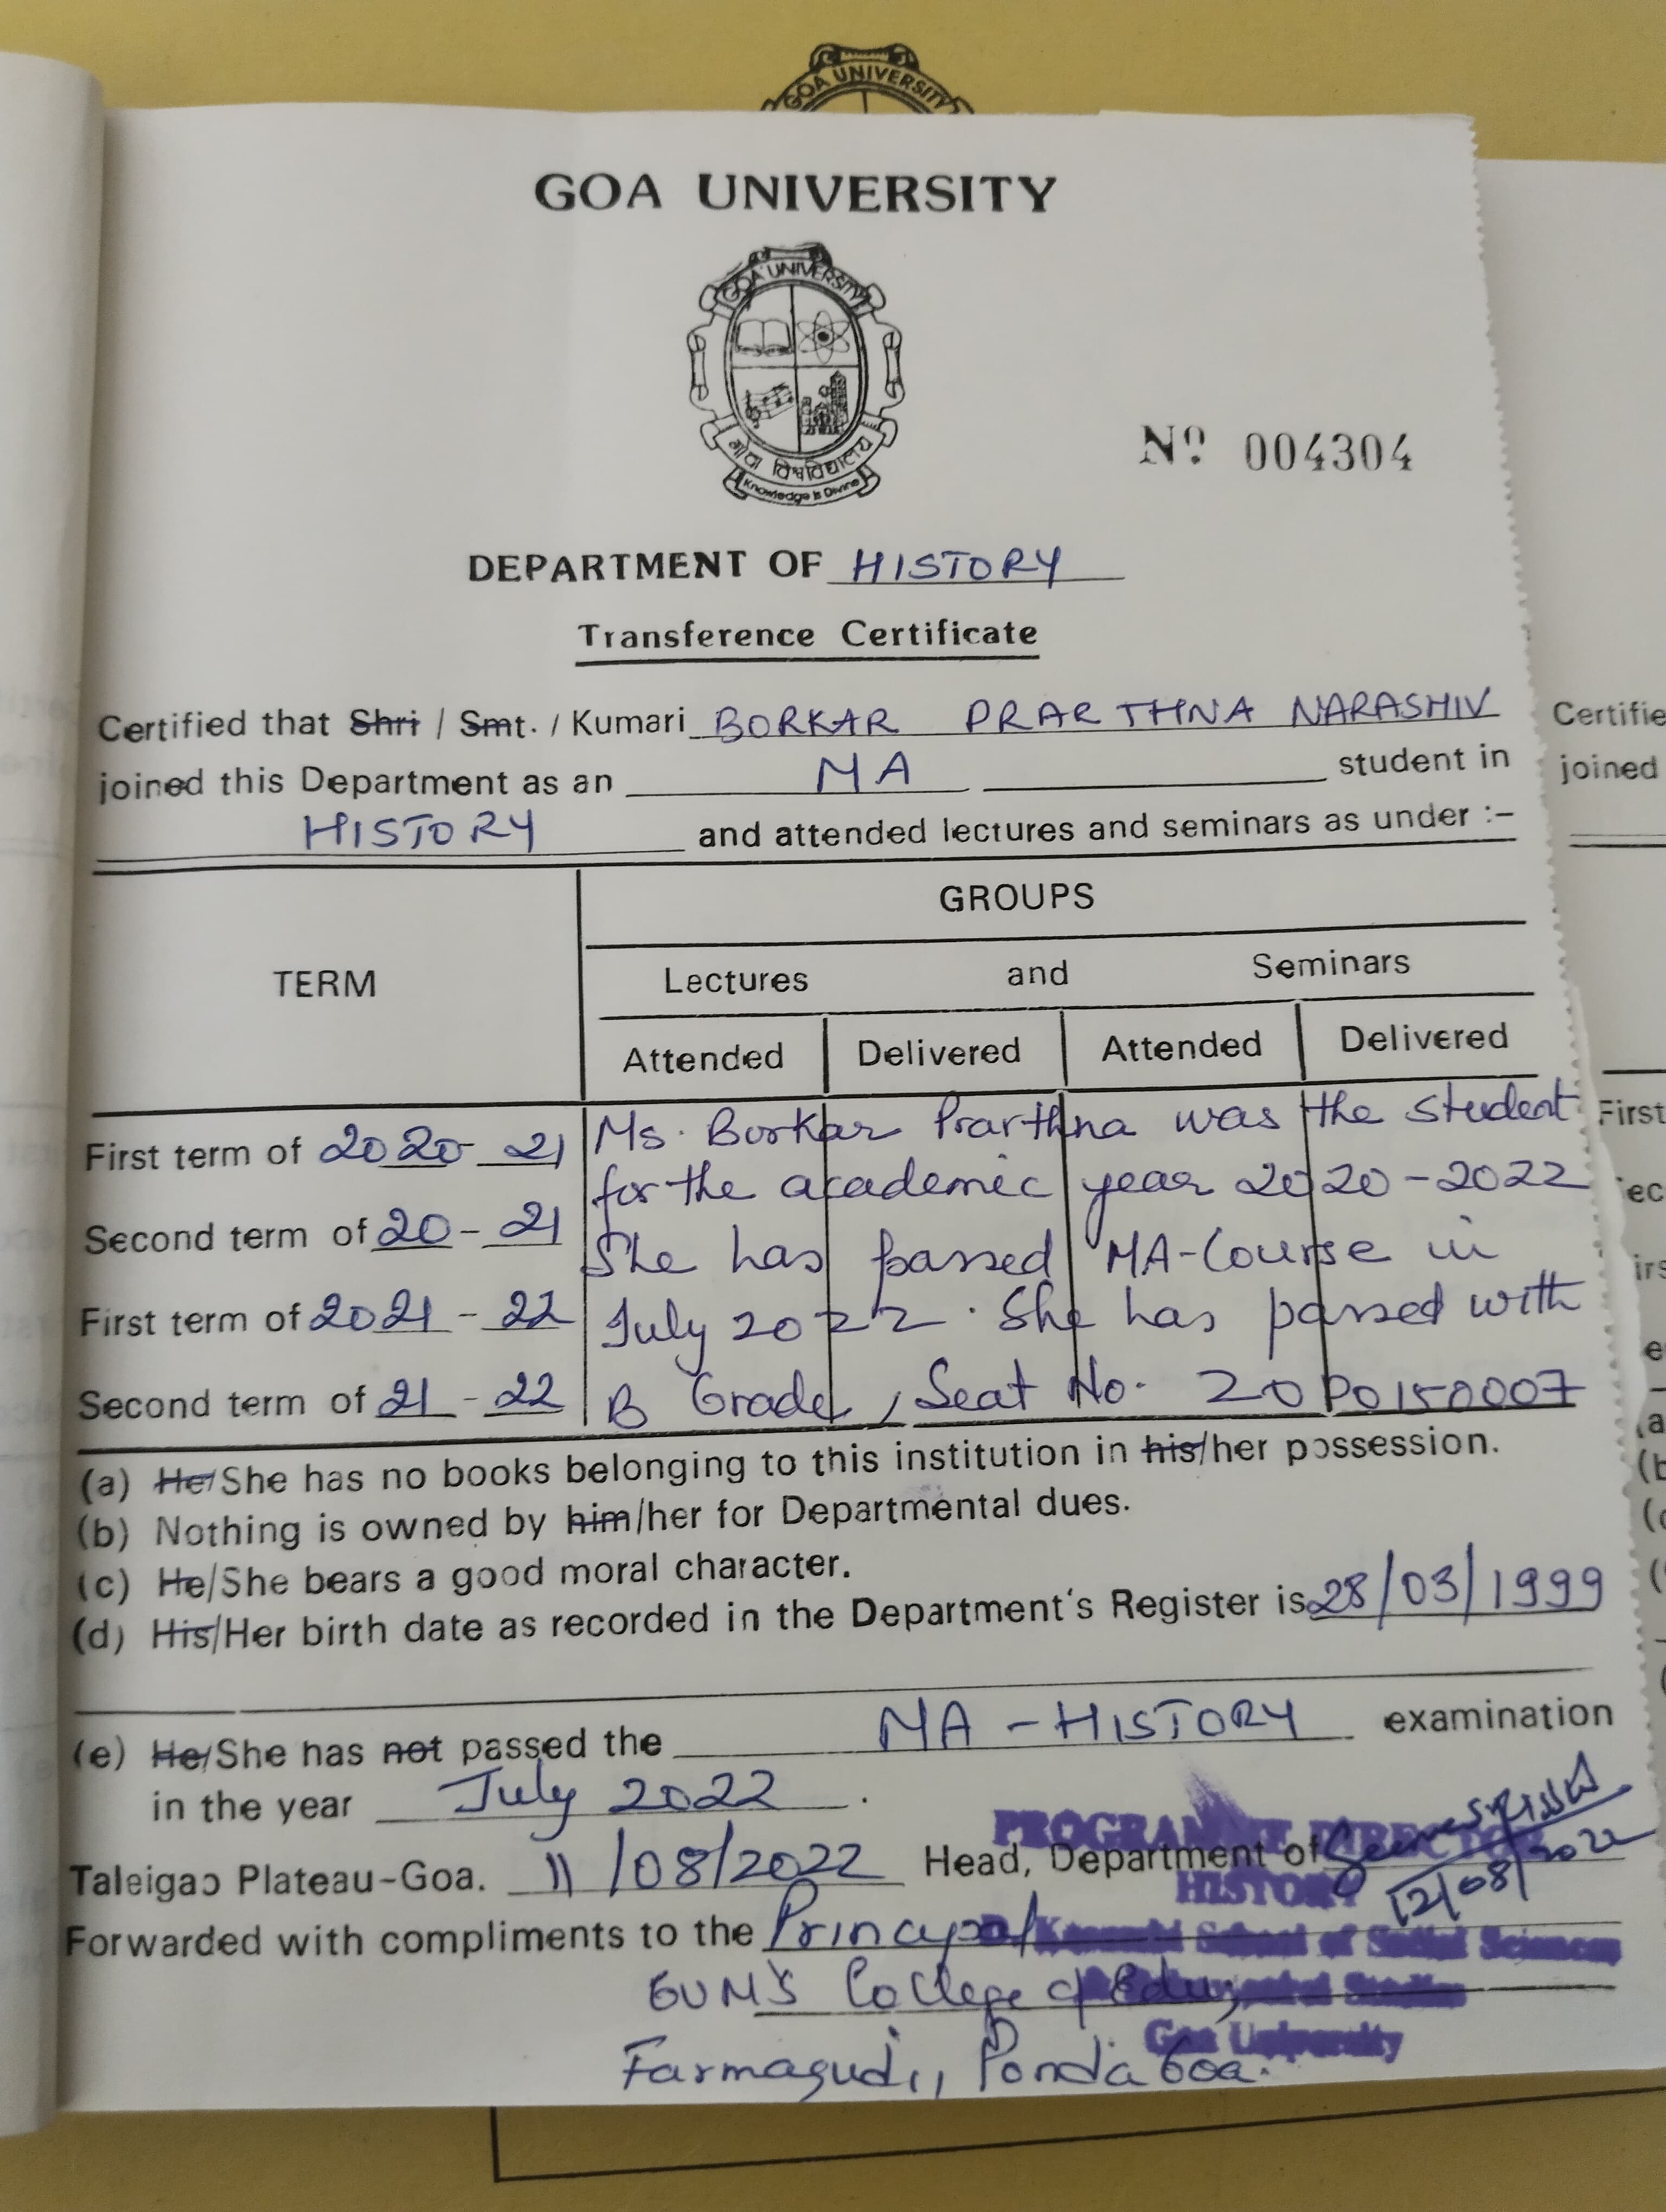 GOA UNIVERSITY
GOA UNIVERSITY
GOA UNIVERSITY
गोंय विश्वविद्यालय
Knowledge is Divine
Nº 004304
DEPARTMENT OF HISTORY
Transference Certificate
Certified that Shri / Smt. / Kumari BORKAR PRARTHNA NARASHIV
joined this Department as an MA student in
HISTORY and attended lectures and seminars as under :-
TERM
GROUPS
Lectures and Seminars
Attended Delivered Attended Delivered
First term of 2020-21 Ms. Borkar Prarthna was the student
for the academic year 2020-2022
Second term of 20-21 She has passed MA-Course in
First term of 2021-22 July 2022. She has passed with
Second term of 21-22 B Grade, Seat No. 20P0150007
(a) He/She has no books belonging to this institution in his/her possession.
(b) Nothing is owned by him/her for Departmental dues.
(c) He/She bears a good moral character.
(d) His/Her birth date as recorded in the Department's Register is 28/03/1999
(e) He/She has not passed the MA-HISTORY examination
in the year July 2022.
PROGRAMME DIRECTOR
Taleigao Plateau-Goa. 11/08/2022 Head, Department of
12/08/2022
HISTORY
Forwarded with compliments to the Principal
School of Social Sciences
GVM'S College of Edu,
Goa University
Farmagudi, Ponda Goa.
Certifie
joined
First